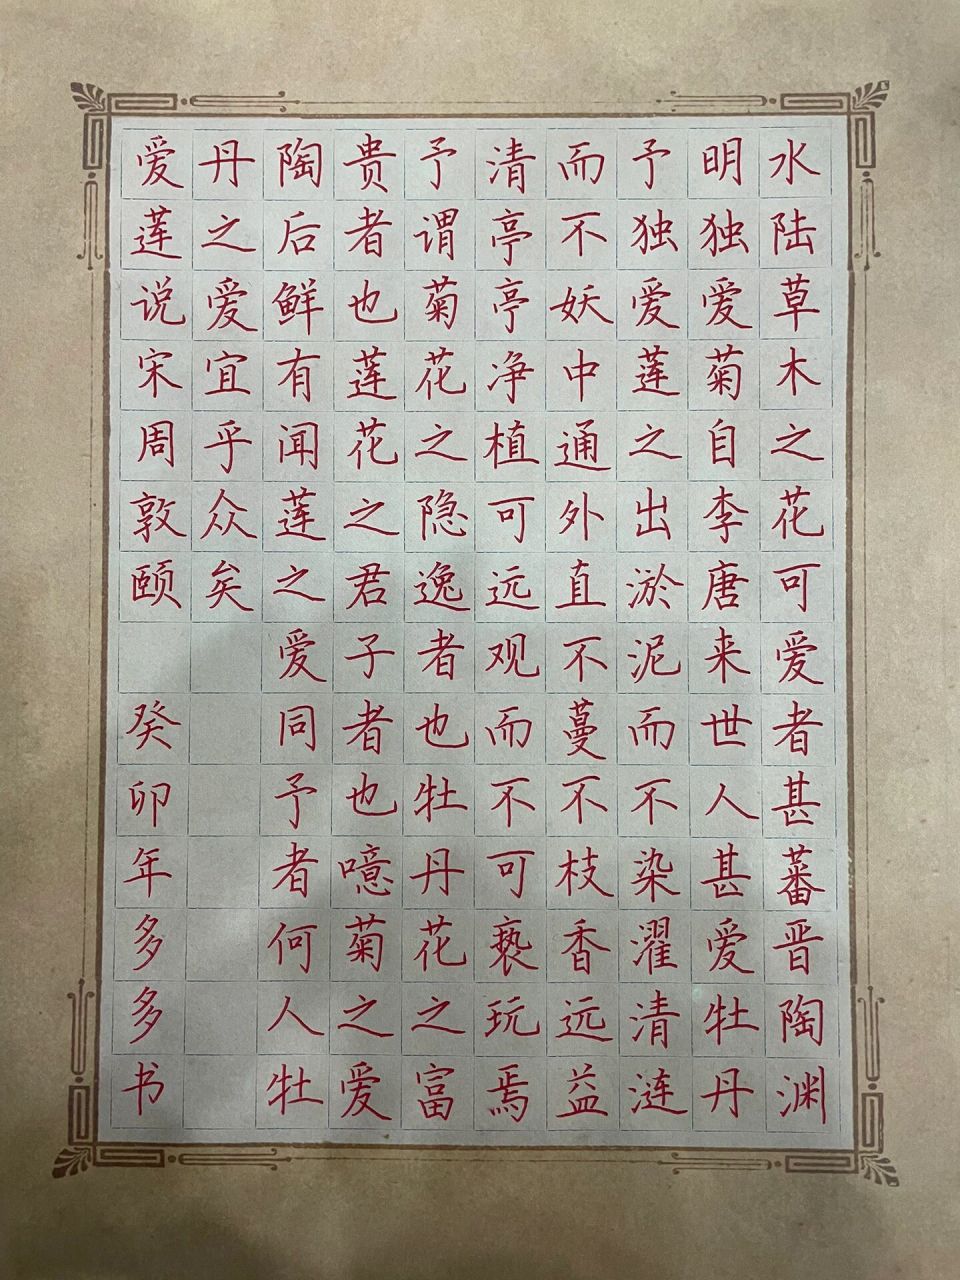 水陆草木之花可爱者甚蕃晋陶渊
明独爱菊自李唐来世人甚爱牡丹
予独爱莲之出淤泥而不染濯清涟
而不妖中通外直不蔓不枝香远益
清亭亭净植可远观而不可亵玩焉
予谓菊花之隐逸者也牡丹花之富
贵者也莲花之君子者也噫菊之爱
陶后鲜有闻莲之爱同予者何人牡
丹之爱宜乎众矣
爱莲说宋周敦颐 癸卯年多多书